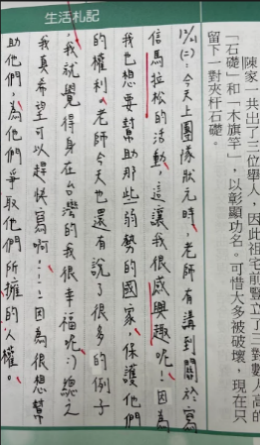 生活札記
陳家一共出了三位舉人，因此祖宅前豎立了三對數人高的
「石礎」和「木旗竿」，以彰顯功名。可惜大多被破壞，現在只
留下一對夾杆石礎。
(二)，今天上團隊狀元時，老師有講到關於寫
信馬拉松的活動，這讓我很感興趣呢！因為
我也想要幫助那些弱勢的國家、保護他們
的權利。老師今天也還有說了很多的例子
，我就覺得身在台灣的我很幸福呢:)總之
我真希望可以趕快寫啊！因為很想幫
助他們，為他們爭取他們所擁的人權。